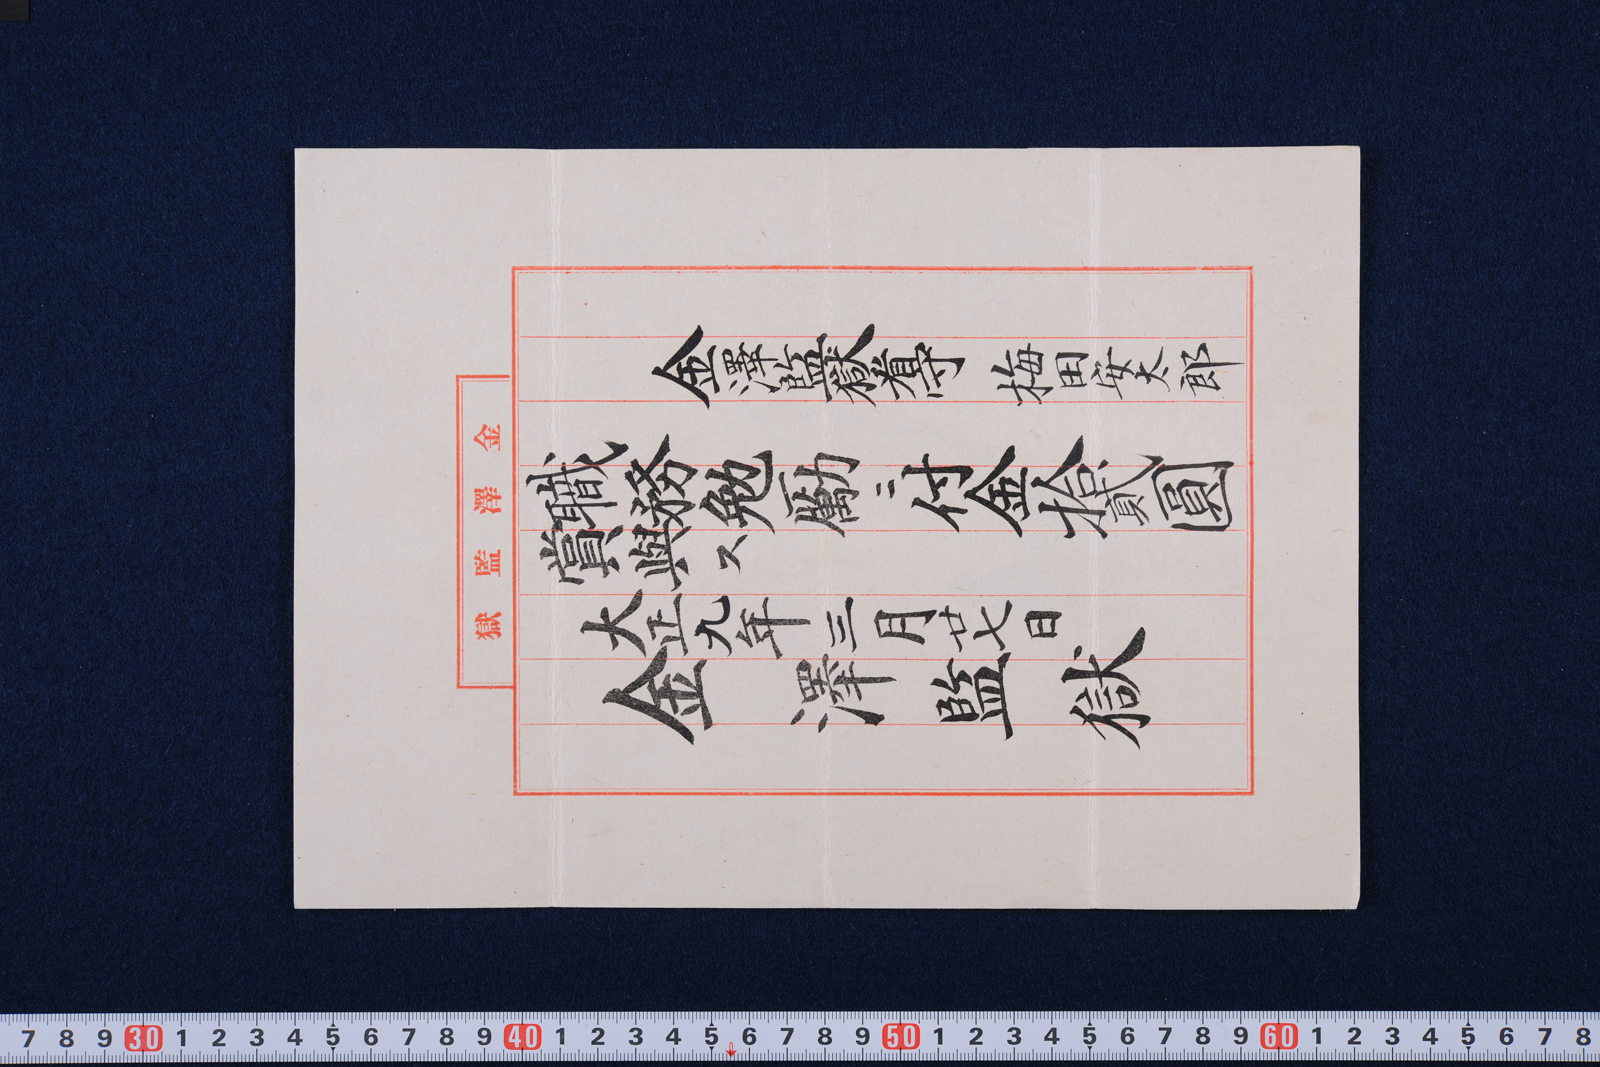 金澤監獄看守 梅田安太郎
職務勉勵ニ付金拾貳圓
賞與ス
大正九年三月廿七日
金澤監獄
金澤監獄
7 8 9 30 1 2 3 4 5 6 7 8 9 40 1 2 3 4 5 6 7 8 9 50 1 2 3 4 5 6 7 8 9 60 1 2 3 4 5 6 7 8